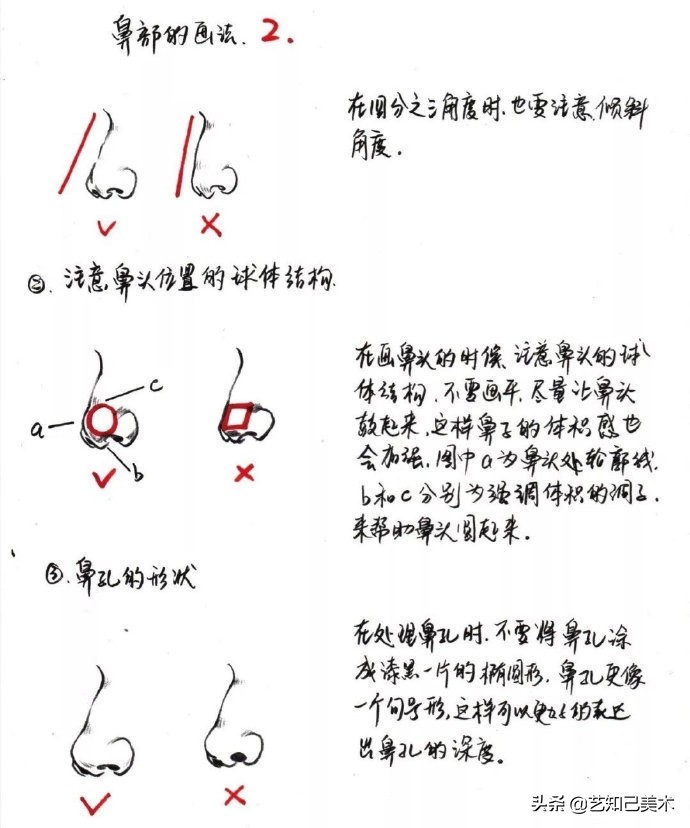 鼻部的画法. 2.
在四分之三角度时.也要注意.倾斜
角度.
②.注意鼻头位置的球体结构.
在画鼻头的时候.注意鼻头的球
体结构.不要画平.尽量让鼻头
鼓起来.这样鼻子的体积感也
会加强.图中a为鼻头处轮廓线.
b和c分别为强调体积的调子.
来帮助鼻头圆起来.
a
c
b
③.鼻孔的形状
在处理鼻孔时.不要将鼻孔涂
成漆黑一片的椭圆形.鼻孔更像
一个句号形.这样可以更好的表达
出鼻孔的深度。
头条 @艺知己美术